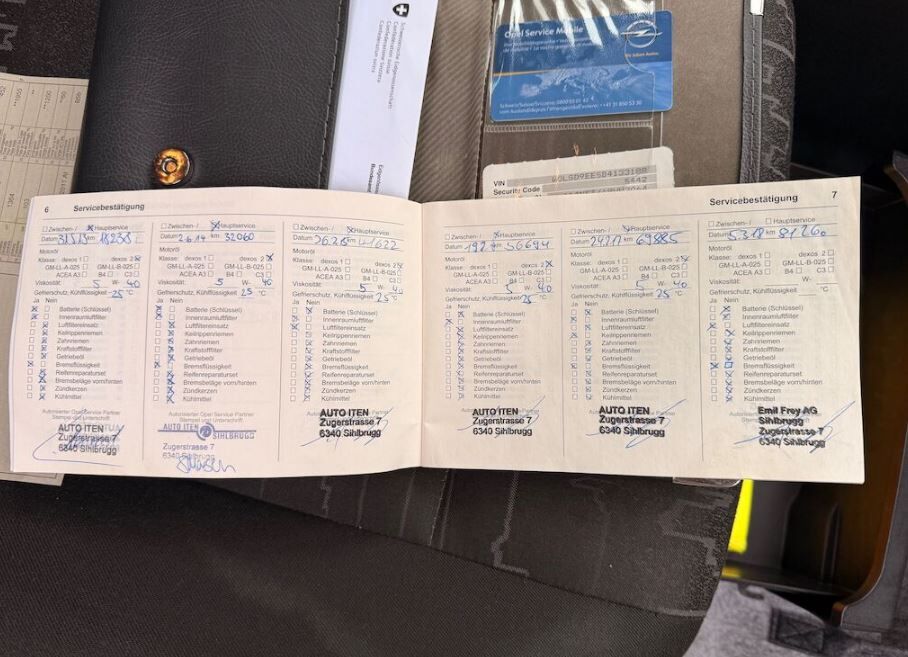 Schweizerische Eidgenossenschaft
Confédération suisse
Confederazione Svizzera
Opel Service Mobile
Wir leben Autos.
VIN
Security Code
6 Servicebestätigung
☐ Zwischen-/ ☒ Hauptservice
Datum km
Motoröl
Klasse: dexos 1 ☐ dexos 2 ☒
GM-LL-A-025 ☐ GM-LL-B-025 ☐
ACEA A3 ☐ B4 ☐ C3 ☐
Viskosität: 5 W- 40
Gefrierschutz, Kühlflüssigkeit -25 °C
Ja Nein
Batterie (Schlüssel)
Innenraumluftfilter
Luftfiltereinsatz
Keilrippenriemen
Zahnriemen
Kraftstofffilter
Getriebeöl
Bremsflüssigkeit
Reifenreparaturset
Bremsbeläge vorn/hinten
Zündkerzen
Kühlmittel
Autorisierter Opel Service Partner
Stempel und Unterschrift
AUTO ITEN
Zugerstrasse 7
6340 Sihlbrugg
☐ Zwischen-/ ☒ Hauptservice
Datum 2.6.14 km 32060
Motoröl
Klasse: dexos 1 ☐ dexos 2 ☒
GM-LL-A-025 ☐ GM-LL-B-025 ☐
ACEA A3 ☐ B4 ☐ C3 ☐
Viskosität: 5 W- 40
Gefrierschutz, Kühlflüssigkeit 25 °C
Ja Nein
Batterie (Schlüssel)
Innenraumluftfilter
Luftfiltereinsatz
Keilrippenriemen
Zahnriemen
Kraftstofffilter
Getriebeöl
Bremsflüssigkeit
Reifenreparaturset
Bremsbeläge vorn/hinten
Zündkerzen
Kühlmittel
Autorisierter Opel Service Partner
Stempel und Unterschrift
AUTO ITEN
SIHLBRUGG
Zugerstrasse 7
6340 Sihlbrugg
☐ Zwischen-/ ☒ Hauptservice
Datum km 41622
Motoröl
Klasse: dexos 1 ☐ dexos 2 ☒
GM-LL-A-025 ☐ GM-LL-B-025 ☐
ACEA A3 ☐ B4 ☐ C3 ☐
Viskosität: 5 W- 40
Gefrierschutz, Kühlflüssigkeit 25 °C
Ja Nein
Batterie (Schlüssel)
Innenraumluftfilter
Luftfiltereinsatz
Keilrippenriemen
Zahnriemen
Kraftstofffilter
Getriebeöl
Bremsflüssigkeit
Reifenreparaturset
Bremsbeläge vorn/hinten
Zündkerzen
Kühlmittel
AUTO ITEN
Zugerstrasse 7
6340 Sihlbrugg
Servicebestätigung 7
☐ Zwischen-/ ☒ Hauptservice
Datum km 56694
Motoröl
Klasse: dexos 1 ☐ dexos 2 ☒
GM-LL-A-025 ☐ GM-LL-B-025 ☐
ACEA A3 ☐ B4 ☐ C3 ☐
Viskosität: 5 W- 40
Gefrierschutz, Kühlflüssigkeit 25 °C
Ja Nein
Batterie (Schlüssel)
Innenraumluftfilter
Luftfiltereinsatz
Keilrippenriemen
Zahnriemen
Kraftstofffilter
Getriebeöl
Bremsflüssigkeit
Reifenreparaturset
Bremsbeläge vorn/hinten
Zündkerzen
Kühlmittel
AUTO ITEN
Zugerstrasse 7
6340 Sihlbrugg
☐ Zwischen-/ ☒ Hauptservice
Datum km 69885
Motoröl
Klasse: dexos 1 ☐ dexos 2 ☒
GM-LL-A-025 ☐ GM-LL-B-025 ☐
ACEA A3 ☐ B4 ☐ C3 ☐
Viskosität: 5 W- 40
Gefrierschutz, Kühlflüssigkeit 25 °C
Ja Nein
Batterie (Schlüssel)
Innenraumluftfilter
Luftfiltereinsatz
Keilrippenriemen
Zahnriemen
Kraftstofffilter
Getriebeöl
Bremsflüssigkeit
Reifenreparaturset
Bremsbeläge vorn/hinten
Zündkerzen
Kühlmittel
AUTO ITEN
Zugerstrasse 7
6340 Sihlbrugg
☐ Zwischen-/ ☐ Hauptservice
Datum 5.3.18 km
Motoröl
Klasse: dexos 1 ☐ dexos 2 ☐
GM-LL-A-025 ☐ GM-LL-B-025 ☐
ACEA A3 ☐ B4 ☐ C3 ☐
Viskosität: W-
Gefrierschutz, Kühlflüssigkeit °C
Ja Nein
Batterie (Schlüssel)
Innenraumluftfilter
Luftfiltereinsatz
Keilrippenriemen
Zahnriemen
Kraftstofffilter
Getriebeöl
Bremsflüssigkeit
Reifenreparaturset
Bremsbeläge vorn/hinten
Zündkerzen
Kühlmittel
Emil Frey AG
Sihlbrugg
Zugerstrasse 7
6340 Sihlbrugg